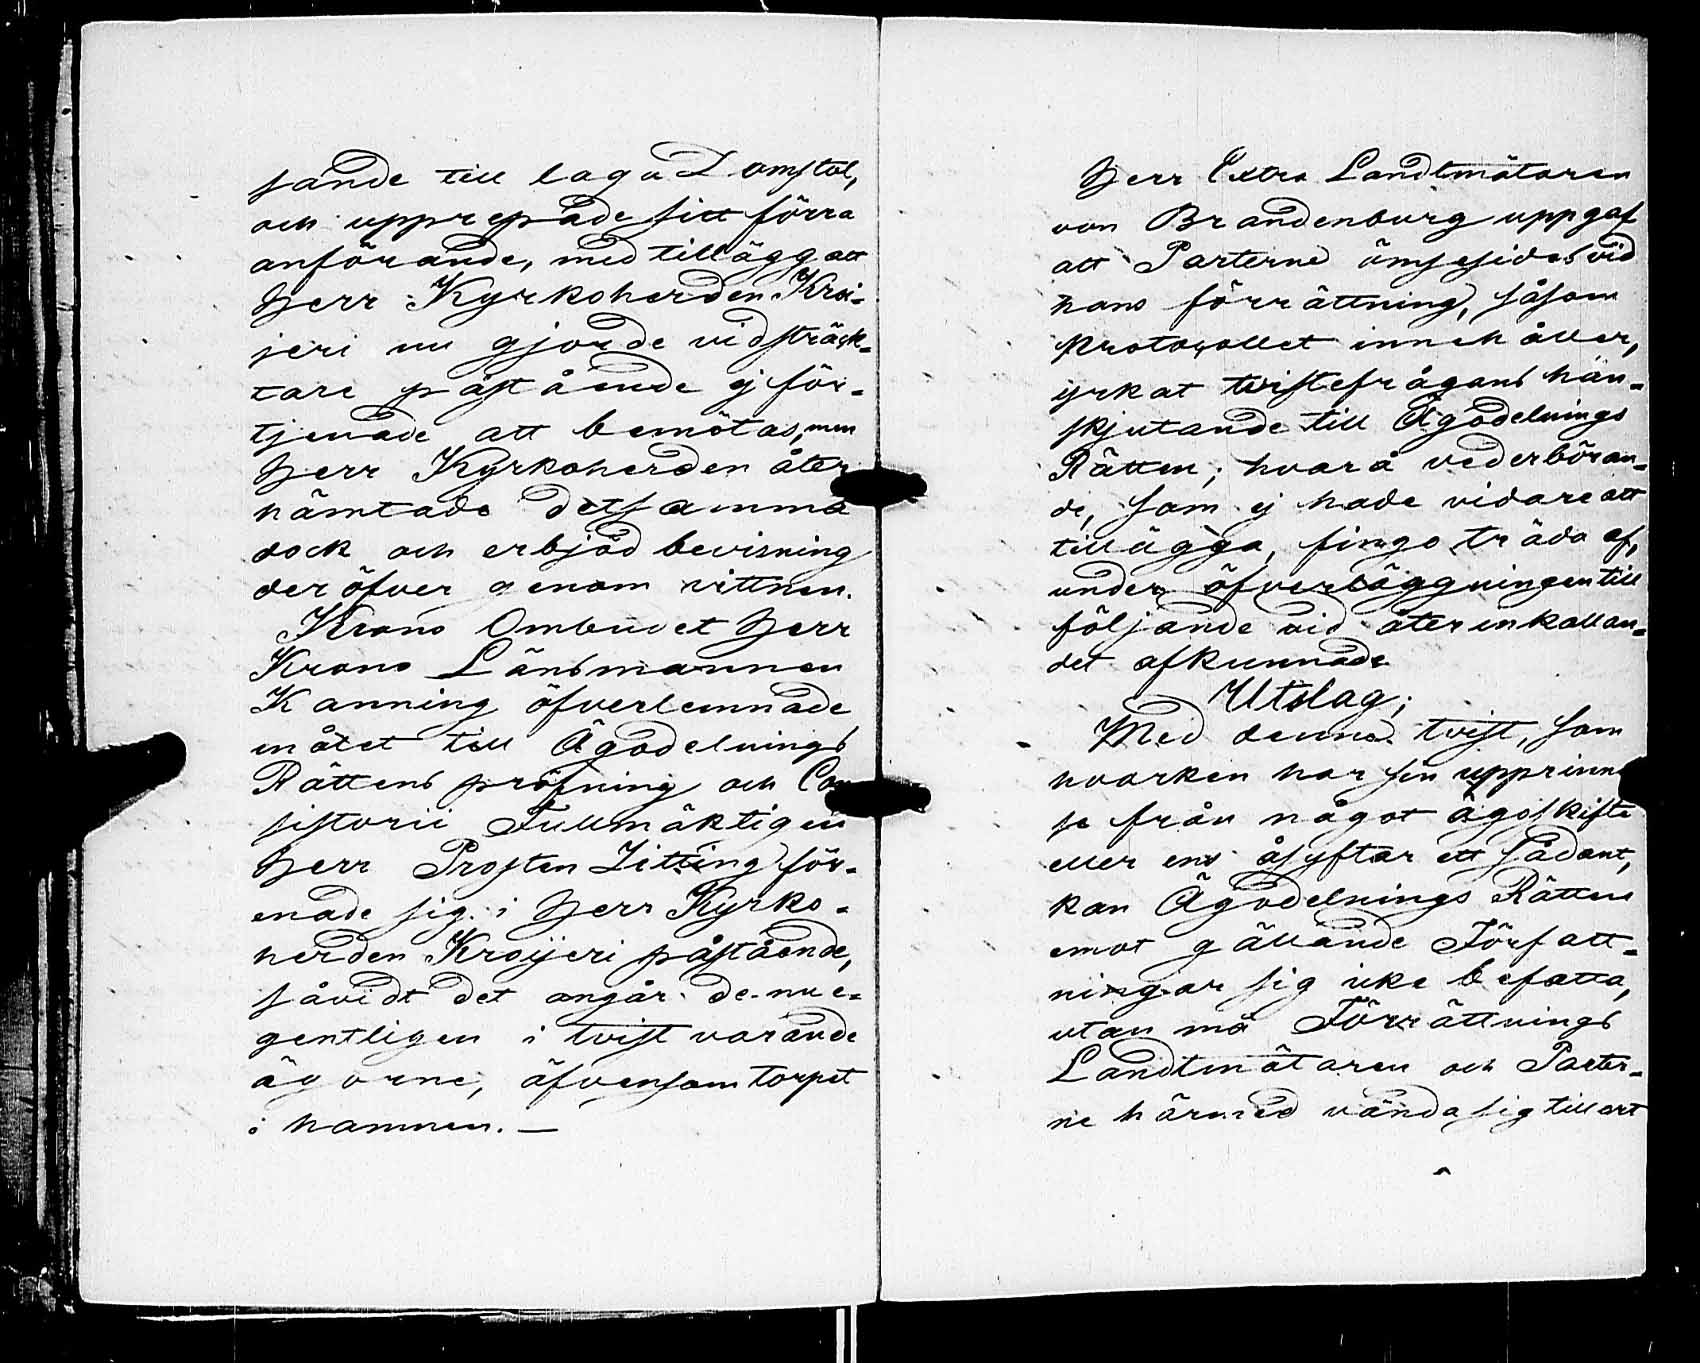 sände till laga Domstol,
och upprepade sitt förra
anförande, med tillägg att
Herr Kyrkoherden Kroi-
jeri nu gjorde vidsträck-
tare påstående ej för-
tjenade att bemötas, men
Herr Kyrkoherden åter
hämtade detsamma
dock och erbjöd bevisning
deröfver genom vittnen.
Krono Ombudet Herr
Krono Länsmannen
Kanning öfverlemnade
målet till Ägodelnings
Rättens pröfning och Con
sistorii Fullmäktigen
Herr Prosten Zitting för-
enade sig i Herr Kyrko-
herden Kroijeri påstående,
såvidt det angår de nu e-
gentligen i tvist varande
ägorne, äfvensom torpet
i hamnen. —
Herr Extra Landtmätaren
von Brandenburg uppgaf
att Parterne ömsesides vid
hans förrättning, såsom
Protocollet innehåller,
yrkat tvistefrågans hän-
skjutande till Ägodelnings
Rätten; hvarå vederböran-
de, som ej hade vidare att
tillägga, fingo träda af,
under öfverläggningen till
följande vid återinkallan-
det afkunnade
Utslag;
Med denna tvist, som
hvarken har sin upprinnel
se från något ägoskifte
eller ens åsyftar ett sådant,
kan Ägodelnings Rätten
emot gällande Författ-
ningar sig icke befatta,
utan må Förrättnings
Landtmätaren och Parter-
ne härmed vända sig till ort